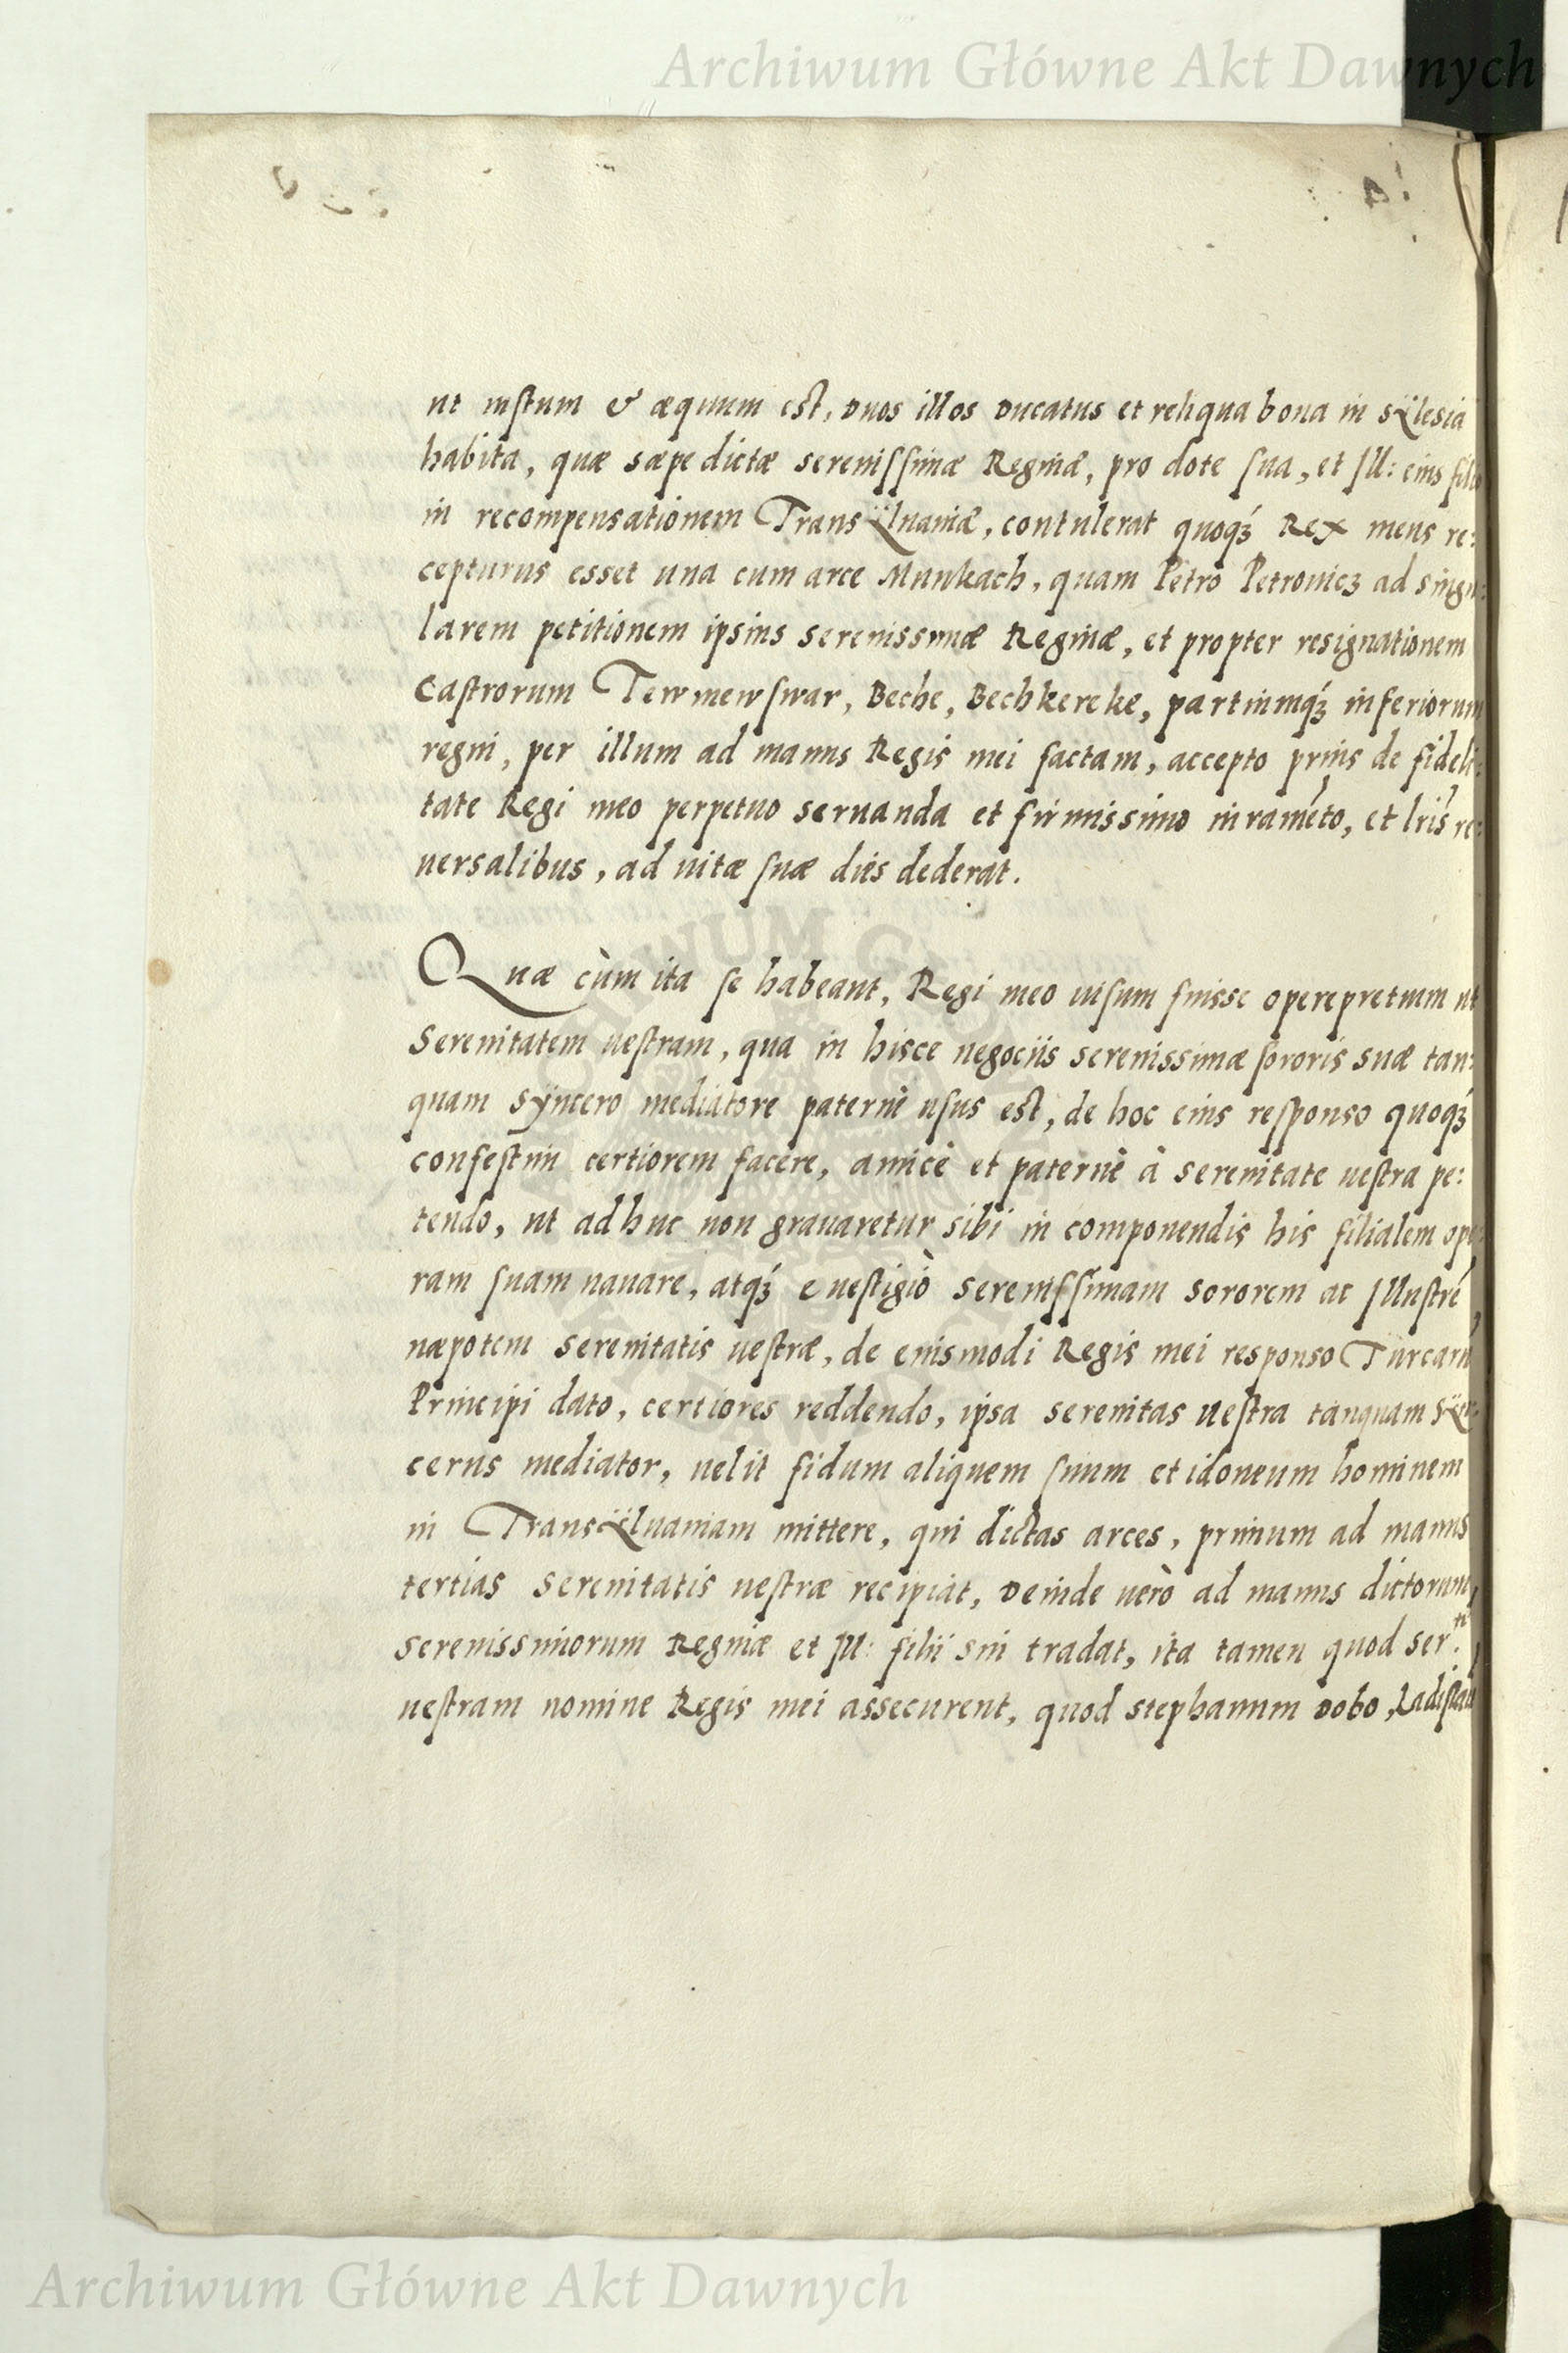 Archiwum Główne Akt Dawnych
ut iustum & æquum est, duos illos ducatus et reliqua bona in sÿlesia
habita, quæ sæpe dictæ serenissimæ Reginæ, pro dote sua, et Ill: eius filio
in recompensationem Transÿluaniæ, contulerat quoqꝫ́ Rex meus re:
cepturus esset una cum arce Munkach, quam Petro Petrouicz ad singu:
larem petitionem ipsius serenissimæ Reginæ, et propter resignationem
Castrorum Tewmewswar, Beche, Bechkereke, partiumqꝫ́ inferiorum
regni, per illum ad manus Regis mei factam, accepto prius de fideli:
tate Regi meo perpetuo seruanda et firmissimo iuraméto, et lr̃is re:
uersalibus, ad uitæ suæ dies dederat.
Quæ cùm ita se habeant, Regi meo uisum fuisse operepretium ut
Serenitatem uestram, qua in hisce negociis serenissimæ sororis suæ tan:
quam sÿncero mediatore paternè usus est, de hoc eius responso quoqꝫ́
confestim certiorem facere, amicè et paternè à serenitate uestra pe:
tendo, ut adhuc non grauaretur sibi in componendis his filialem ope
ram suam nauare, atqꝫ́ e uestigiò serenissimam sororem ac Illustré
næpotem serenitatis uestræ, de eiusmodi Regis mei responso Turcarũ
Principi dato, certiores reddendo, ipsa serenitas uestra tanquam sÿn:
cerus mediator, uelit fidum aliquem suum et idoneum hominem
in Transÿluaniam mittere, qui dictas arces, primum ad manus
tertias serenitatis uestræ recipiat, deinde uerò ad manus dictorum,
serenissimorum Reginæ et Ill: filii sui tradat, ita tamen quod ser.tẽ
uestram nomine Regis mei assecurent, quod stephanum Dobo, Ladislau
ARCHIWUM GŁÓWNE AKT DAWNYCH
Archiwum Główne Akt Dawnych